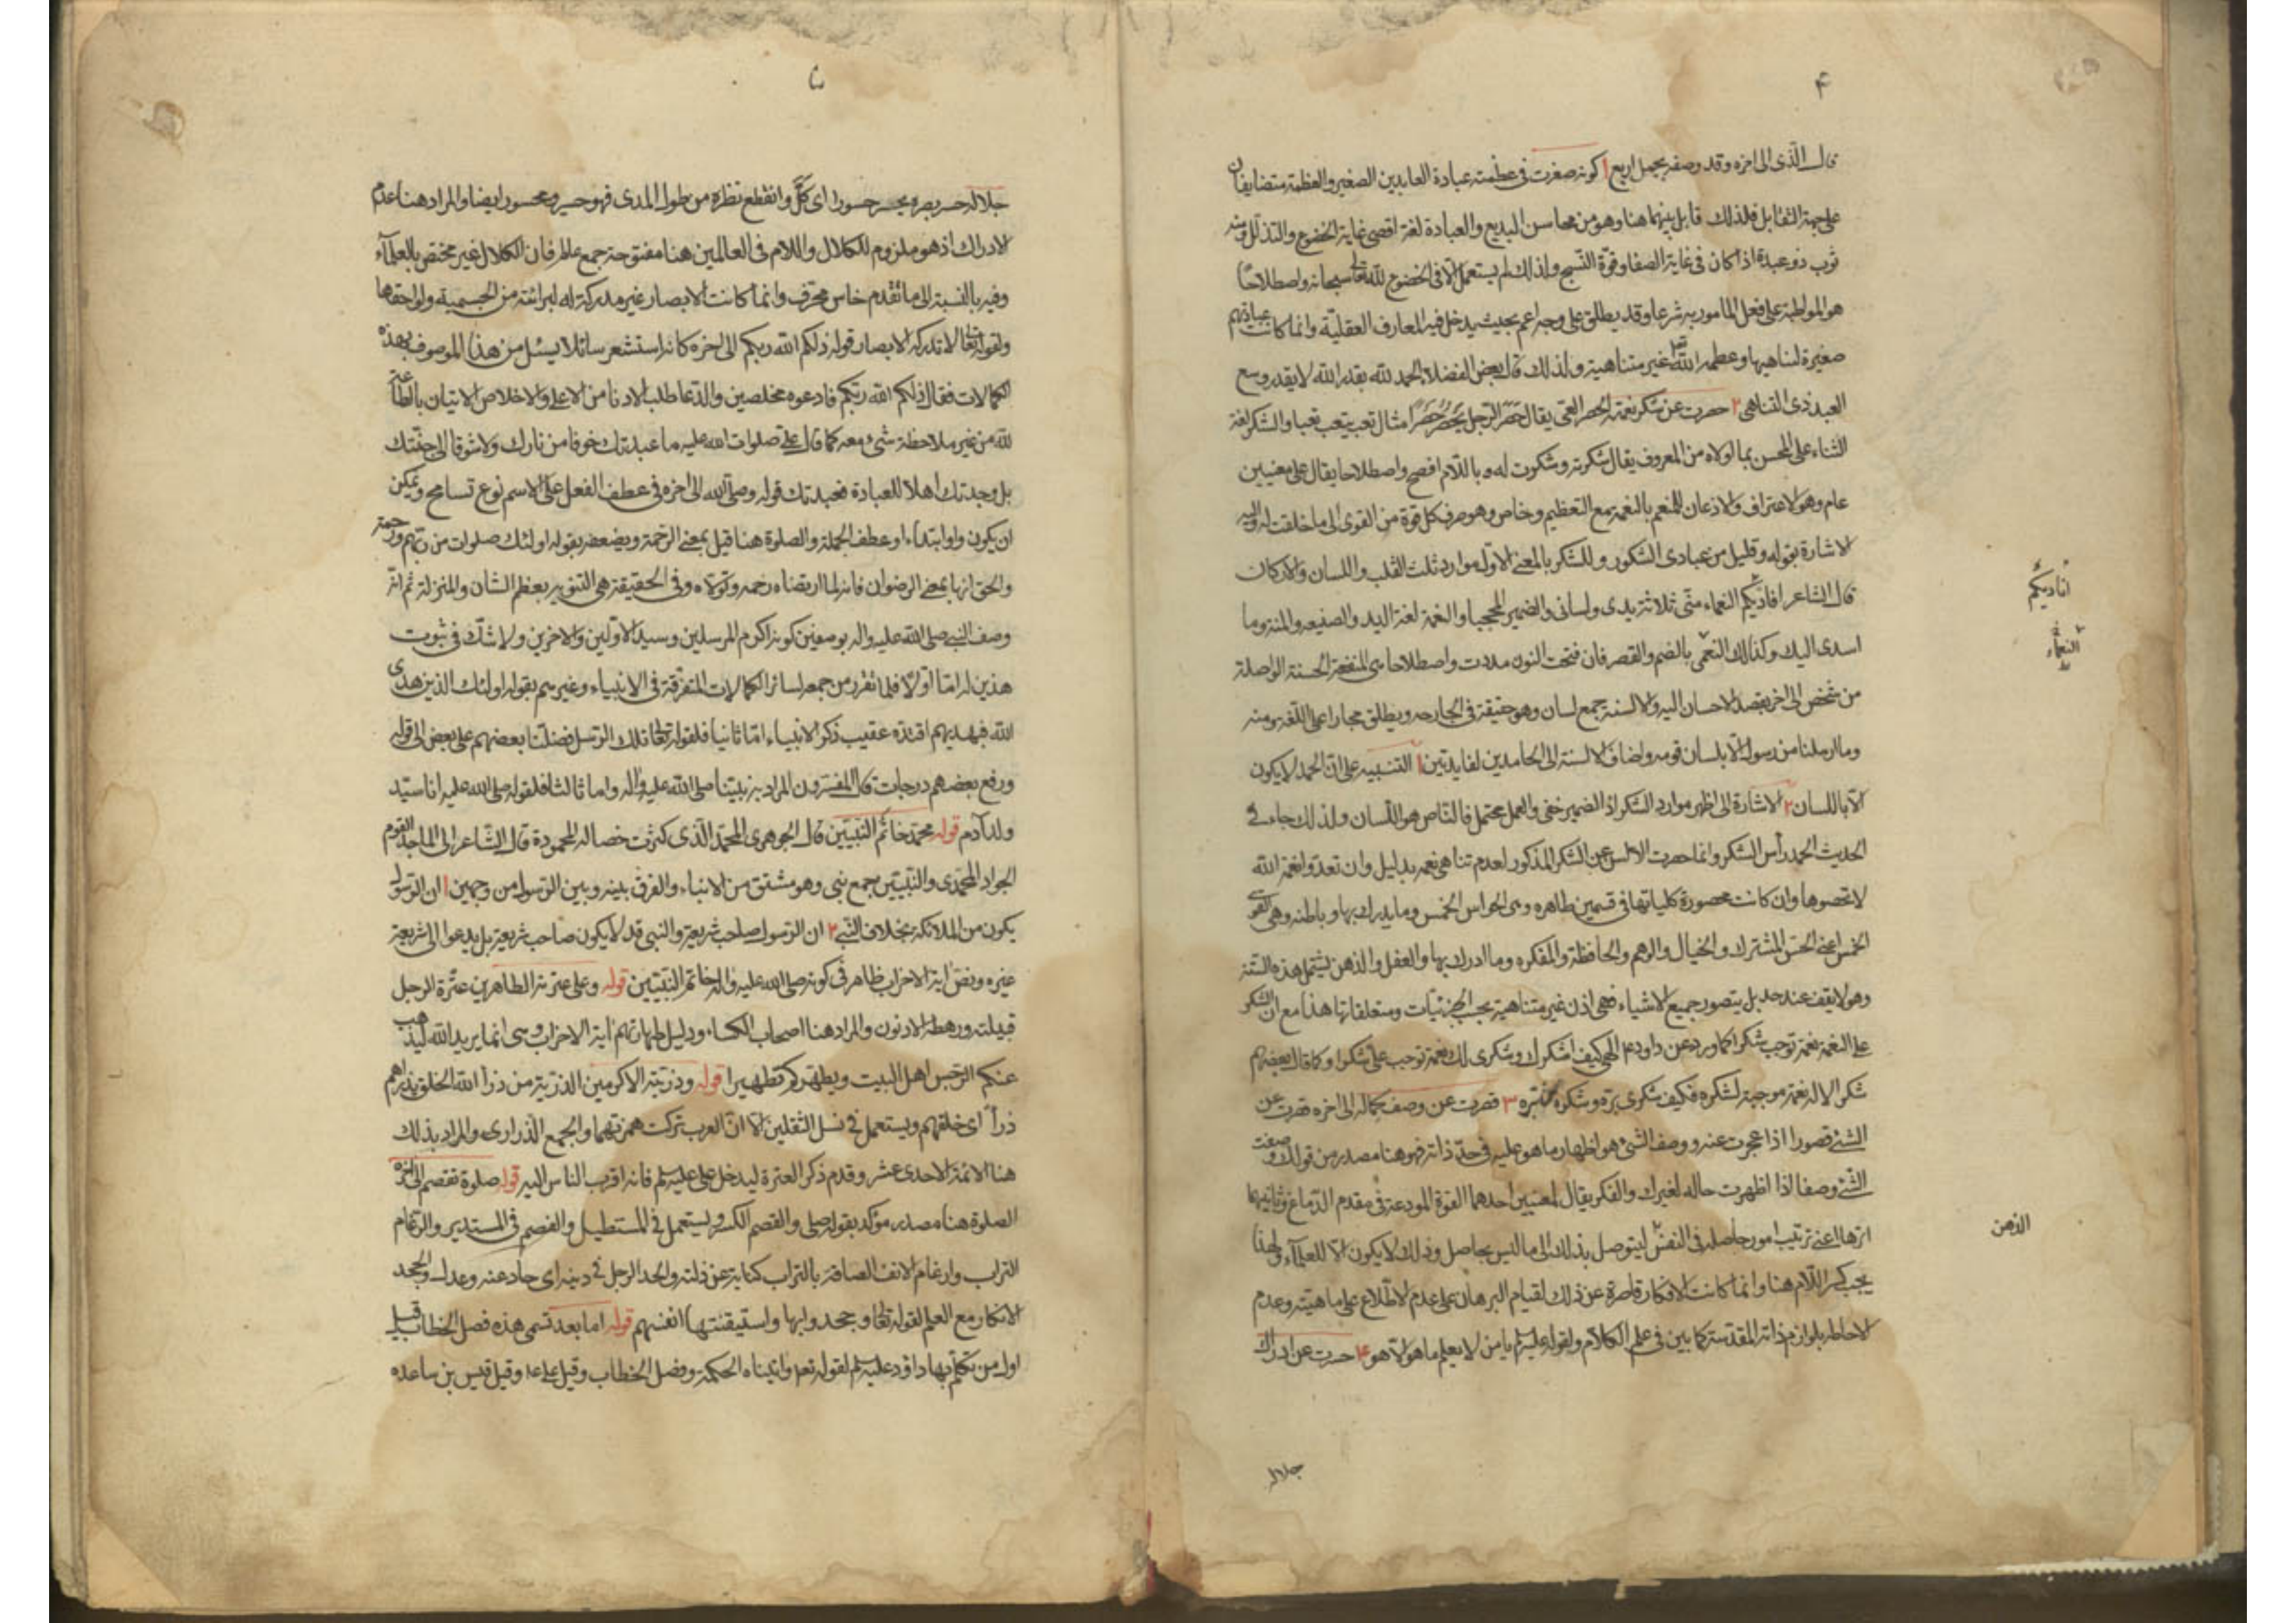 ۴
قال الذى الى اخره وقد وصفه بجمل اربع ا كونه صغرت فى عظمته عبادة العابدين الصغير والعظمة متضايفان
على جهة التقابل فلذلك قابل بينهما هنا وهو من محاسن البديع والعبادة لغة اقصى غاية الخضوع والتذلل ومنه
ثوب ذو عبدة اذا كان فى غاية الصفا وقوة النسج ولذلك لم يستعمل الا فى الخضوع لله تعالى سبحانه واصطلاحا
هو المواظبة على فعل المامور به شرعا وقد يطلق على وجه اعم بحيث يدخل فيه المعارف العقلية وانما كانت عبادتهم
صغيرة لتناهيها وعظمة الله تعالى غير متناهية ولذلك قال بعض الفضلاء الحمد لله بقدر الله لا بقدر وسع
العبد ذى التناهى ٢ حصرت عن شكر نعمته الحصر العى يقال حصر الرجل يحصر حصرا مثال تعب يتعب تعبا والشكر لغة
الثناء على المحسن بما اولاه من المعروف يقال شكرته وشكرت له وباللام افصح واصطلاحا يقال على معنيين
عام وهو الاعتراف والاذعان للمنعم بالنعمة مع التعظيم وخاص وهو صرف كل قوة من القوى الى ما خلقت له واليه
الاشارة بقوله وقليل من عبادى الشكور وللشكر بالمعنى الاول موارد ثلث القلب واللسان والاركان
قال الشاعر افادتكم النعماء منى ثلاثة يدى ولسانى والضمير المحجبا والنعمة لغة اليد والصنيعه والمنة وما
اسدى اليك وكذلك النعمى بالضم والقصر فان فتحت النون مددت واصطلاحا هى المنفعة الحسنة الواصلة
من شخص الى اخر بقصد الاحسان اليه والالسنة جمع لسان وهو حقيقة فى الجارحه ويطلق مجازا على اللغة ومنه
وما ارسلنا من رسول الا بلسان قومه واضاف الالسنة الى الحامدين لفايدتين ا التنبيه على ان الحمد لا يكون
الا باللسان ٢ الاشارة الى اظهر موارد الشكر اذ الضمير خفى والعمل محتمل فالناص هو اللسان ولذلك جاء فى
الحديث الحمد راس الشكر وانما حصرت الالسن عن الشكر المذكور لعدم تناهى نعمه بدليل وان تعدوا نعمة الله
لا تحصوها وان كانت محصورة كلياتها فى قسمين ظاهره وهى الحواس الخمس وما يدرك بها وباطنه وهى القوى
الخمس اعنى الحس المشترك والخيال والوهم والحافظة والمفكره وما ادرك بها والعقل والذهن ليشتمل هذه الستة
وهو لا يقف عند حد بل يتصور جميع الاشياء فهى اذن غير متناهية بحسب الجزئيات ومتعلقاتها هذا مع ان الشكر
على النعمة نعمة توجب شكرا كما ورد عن داود ع الهى كيف اشكرك وشكرى لك نعمة توجب على شكرا وكما قال بعضهم
شكر الاله نعمة موجبة لشكره فكيف شكرى بره وشكره من بره ٣ قصرت عن وصف كماله الى اخره قصرت عن
الشئ قصورا اذا عجزت عنه ووصف الشئ هو اظهار ما هو عليه فى حد ذاته فهو هنا مصدر من قولك وصفت
الشئ وصفا اذا اظهرت حاله لغيرك والفكر يقال لمعنيين احدهما القوة المودعة فى مقدم الدماغ وثانيهما
اثرها اعنى ترتيب امور حاصله فى النفس ليتوصل بذلك الى ما ليس بحاصل وذلك لا يكون الا للعلماء ولهذا
يجب كسر اللام هنا وانما كانت الافكار قاصرة عن ذلك لقيام البرهان على عدم الاطلاع على ماهيته وعدم
الاحاطه بلوازم ذاته المقدسة كما بين فى علم الكلام ولقوله عليه السلم يا من لا يعلم ما هو الا هو ٤ حسرت عن ادراك
جلاله
اناديكم
النعماء
الذهن
۵
جلاله حسر بصره يحسر حسورا اى كل وانقطع نظره من طول المدى فهو حسير ومحسور ايضا والمراد هنا عدم
الادراك اذ هو ملزوم للكلال واللام فى العالمين هنا مفتوحة جمع عالم فان الكلال غير مختص بالعلماء
وفيه بالنسبة الى ما تقدم خاس محرف وانما كانت الابصار غير مدركة له لبرائته من الجسمية ولواحقها
ولقوله تعالى لا تدركه الابصار قوله ذلكم الله ربكم الى اخره كانه استشعر سائلا يسئل من هذا الموصوف بهذه
الكمالات فقال ذلكم الله ربكم فادعوه مخلصين والدعا طلب الادنا من الاعلى والاخلاص الاتيان بالطاعة
لله من غير ملاحظة شىء معه كما قال على صلوات الله عليه ما عبدتك خوفا من نارك ولا شوقا الى جنتك
بل وجدتك اهلا للعبادة فعبدتك قوله وصلى الله الى اخره فى عطف الفعل على الاسم نوع تسامح ويمكن
ان يكون واو ابتداء او عطف الجملة والصلوة هنا قيل بمعنى الرحمة ويضعفه بقوله اولئك صلوات من ربهم ورحمة
والحق انها بمعنى الرضوان فانه لما ارتضاه رحمه وتولاه وفى الحقيقة هى التنويه بعظم الشان والمنزلة ثم انه
وصف النبى صلى الله عليه واله بوصفين كونه اكرم المرسلين وسيد الاولين والاخرين ولا شك فى ثبوت
هذين له اما اولا فلما تقرر من جمعه لسائر الكمالات المتفرقة فى الانبياء وغيرهم بقوله اولئك الذين هدى
الله فبهديهم اقتده عقيب ذكر الانبياء اما ثانيا فلقوله تعالى تلك الرسل فضلنا بعضهم على بعض الى قوله
ورفع بعضهم درجات قال المفسرون المراد به نبينا صلى الله عليه واله واما ثالثا فلقوله صلى الله عليه انا سيد
ولد آدم قوله محمد خاتم النبيين قال الجوهرى المحمد الذى كثرت خصاله المحمودة قال الشاعر الى الماجد القوم
الجواد المحمدى والنبيين جمع نبى وهو مشتق من الانباء والفرق بينه وبين الرسول من وجهين ا ان الرسول
يكون من الملائكه بخلاف النبى ٢ ان الرسول صاحب شريعة والنبى قد لا يكون صاحب شريعة بل يدعوا الى شريعة
غيره ونص اية الاحزاب ظاهر فى كونه صلى الله عليه واله خاتم النبيين قوله وعلى عترته الطاهرين عترة الرجل
قبيلته ورهطه الادنون والمراد هنا اصحاب الكساء ودليل طهارتهم اية الاحزاب وهى انما يريد الله ليذهب
عنكم الرجس اهل البيت ويطهركم تطهيرا قوله وذريته الاكرمين الذرية من ذرا الله الخلق يذراهم
ذرأ اى خلقهم ويستعمل فى نسل الثقلين الا ان العرب تركت همزتهما والجمع الذرارى والمراد بذلك
هنا الائمة الاحدى عشر وقدم ذكر العترة ليدخل على عليه السلم فانه اقرب الناس اليه قوله صلوة تقصم الى اخره
الصلوة هنا مصدر مؤكد بقوله صلى والقصم الكسر ويستعمل فى المستطيل والفصم فى المستدير والرغام
التراب وارغام الانف الصاقه بالتراب كناية عن ذلته والحد الرجل فى دينه اى حاد عنه وعدل والجحد
الانكار مع العلم لقوله تعالى وجحدوا بها واستيقنتها انفسهم قوله اما بعد تسمى هذه فصل الخطاب قيل
اول من تكلم بها داود عليه السلم لقوله تعم واتيناه الحكمة وفصل الخطاب وقيل على ع وقيل قيس بن ساعده